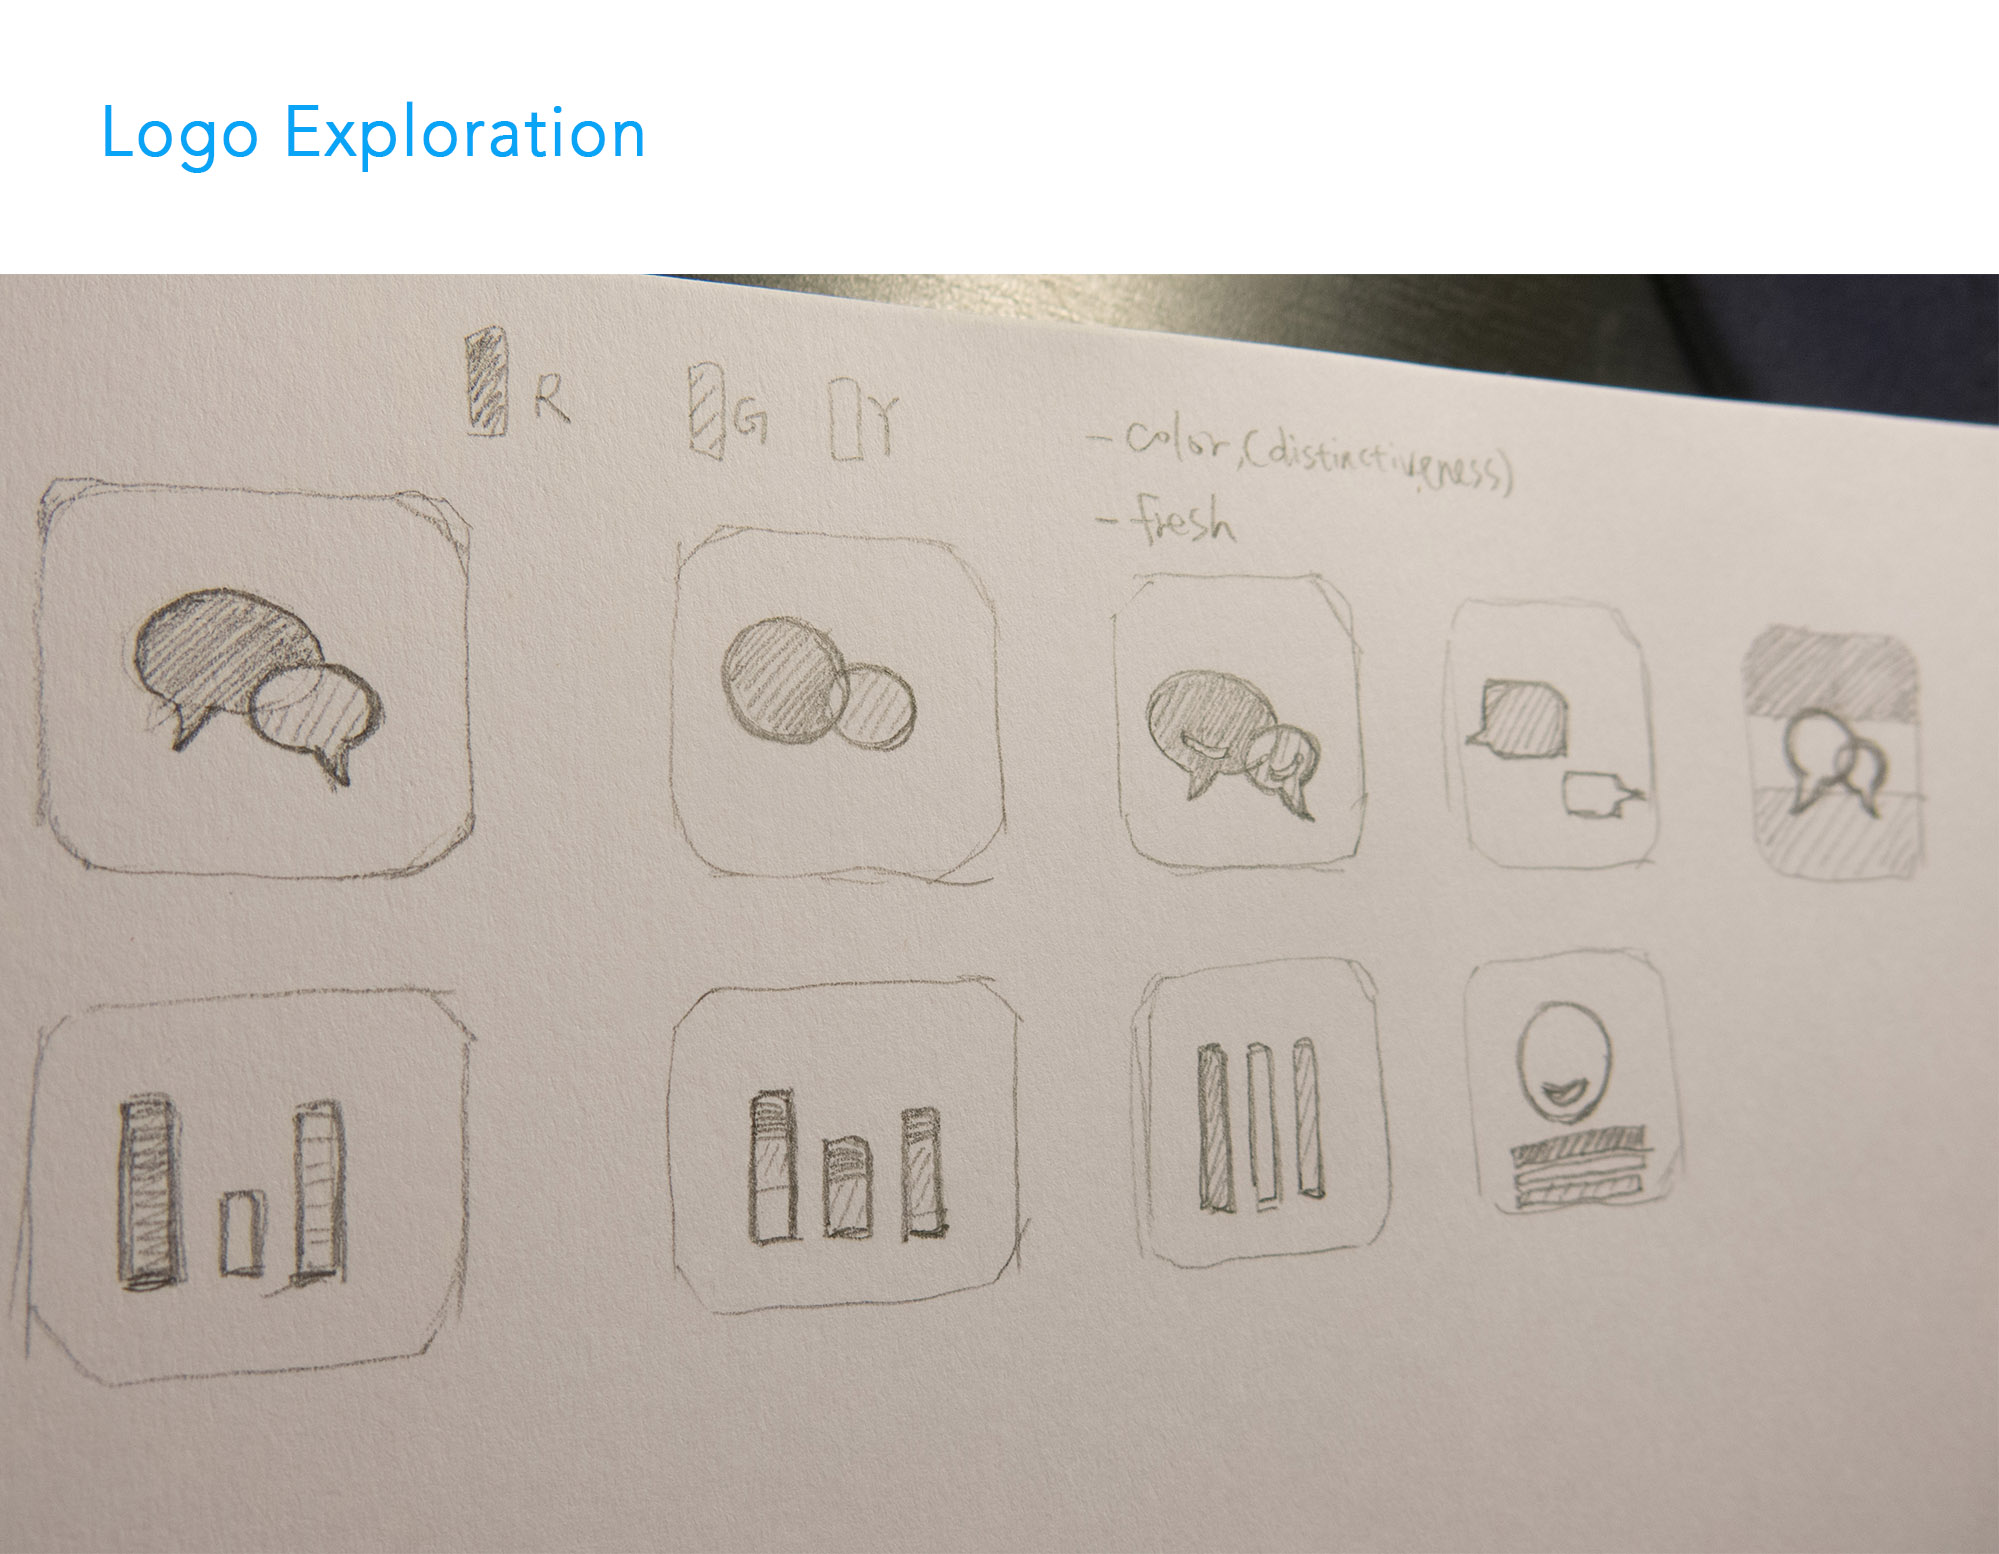 Logo Exploration
R G Y
- color, (distinctiveness)
- fresh